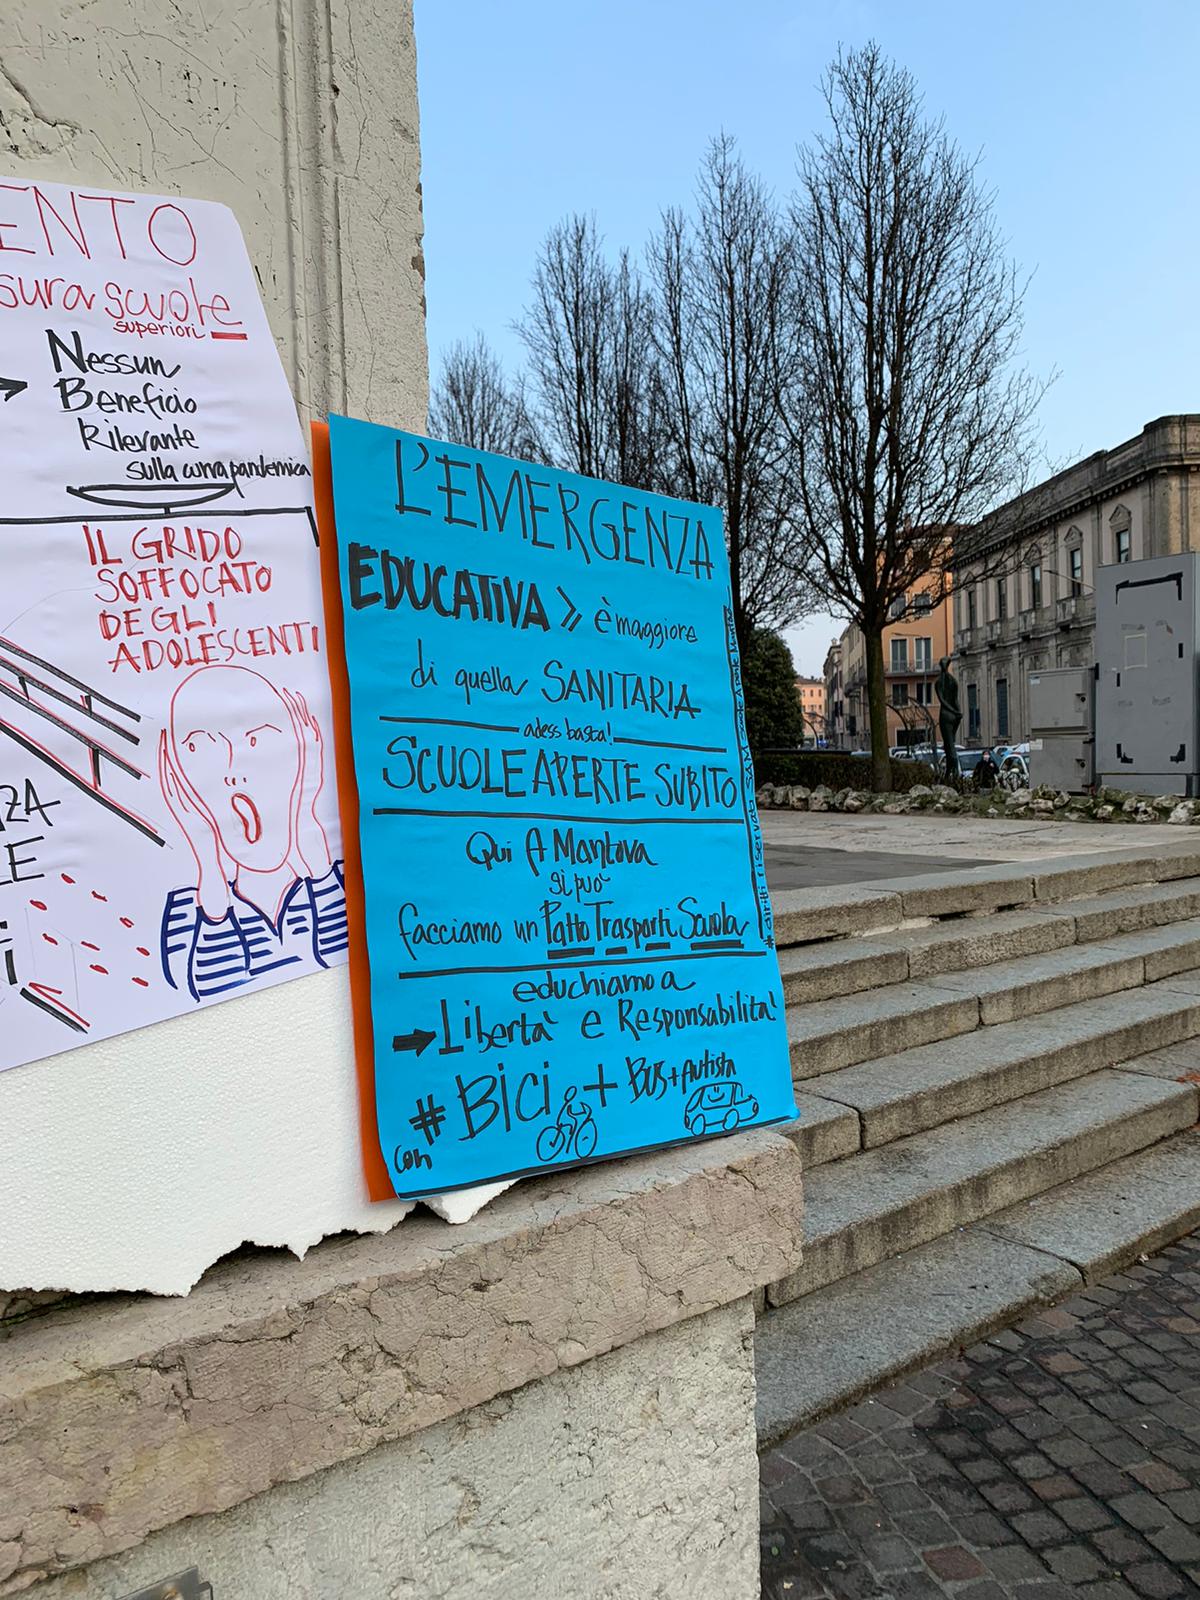 ENTO
sura scuole
superiori
Nessun
Beneficio
Rilevante
sulla curva pandemica
IL GRIDO
SOFFOCATO
DEGLI
ADOLESCENTI
ZA
LE
L'EMERGENZA
EDUCATIVA >> è maggiore
di quella SANITARIA
adess basta!
SCUOLE APERTE SUBITO
Qui A Mantova
si può
facciamo un Patto Trasporti Scuola
educhiamo a
Libertà e Responsabilità
con # BICI + BUS + Autista
# diritti riservati SAM Scuole Aperte Mantova